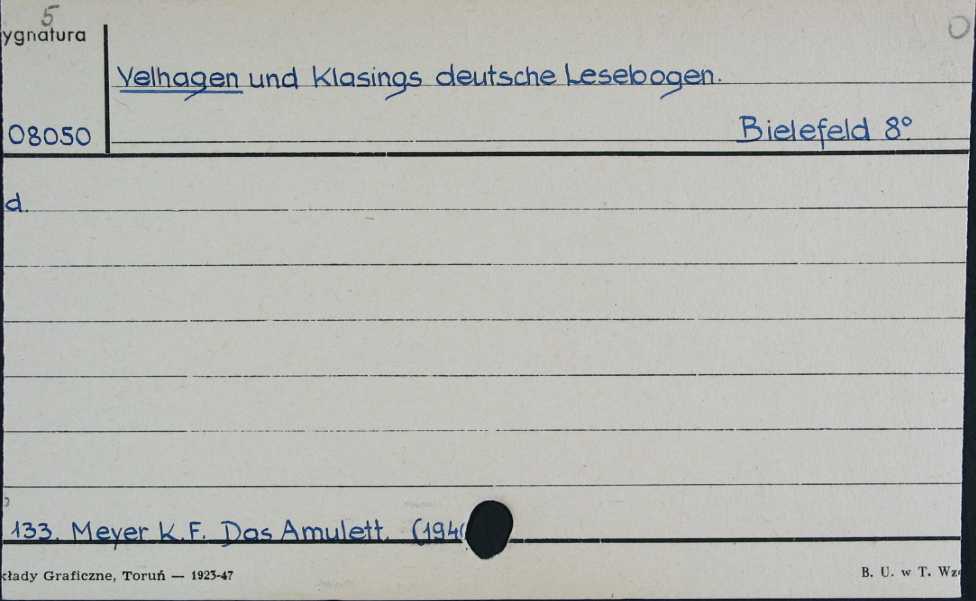 5
ygnatura
Velhagen und Klasings deutsche Lesebogen.
08050
Bielefeld 8°
d.
133. Meyer K.F. Das Amulett. (194
kłady Graficzne, Toruń — 1923-47
B. U. w T. Wz